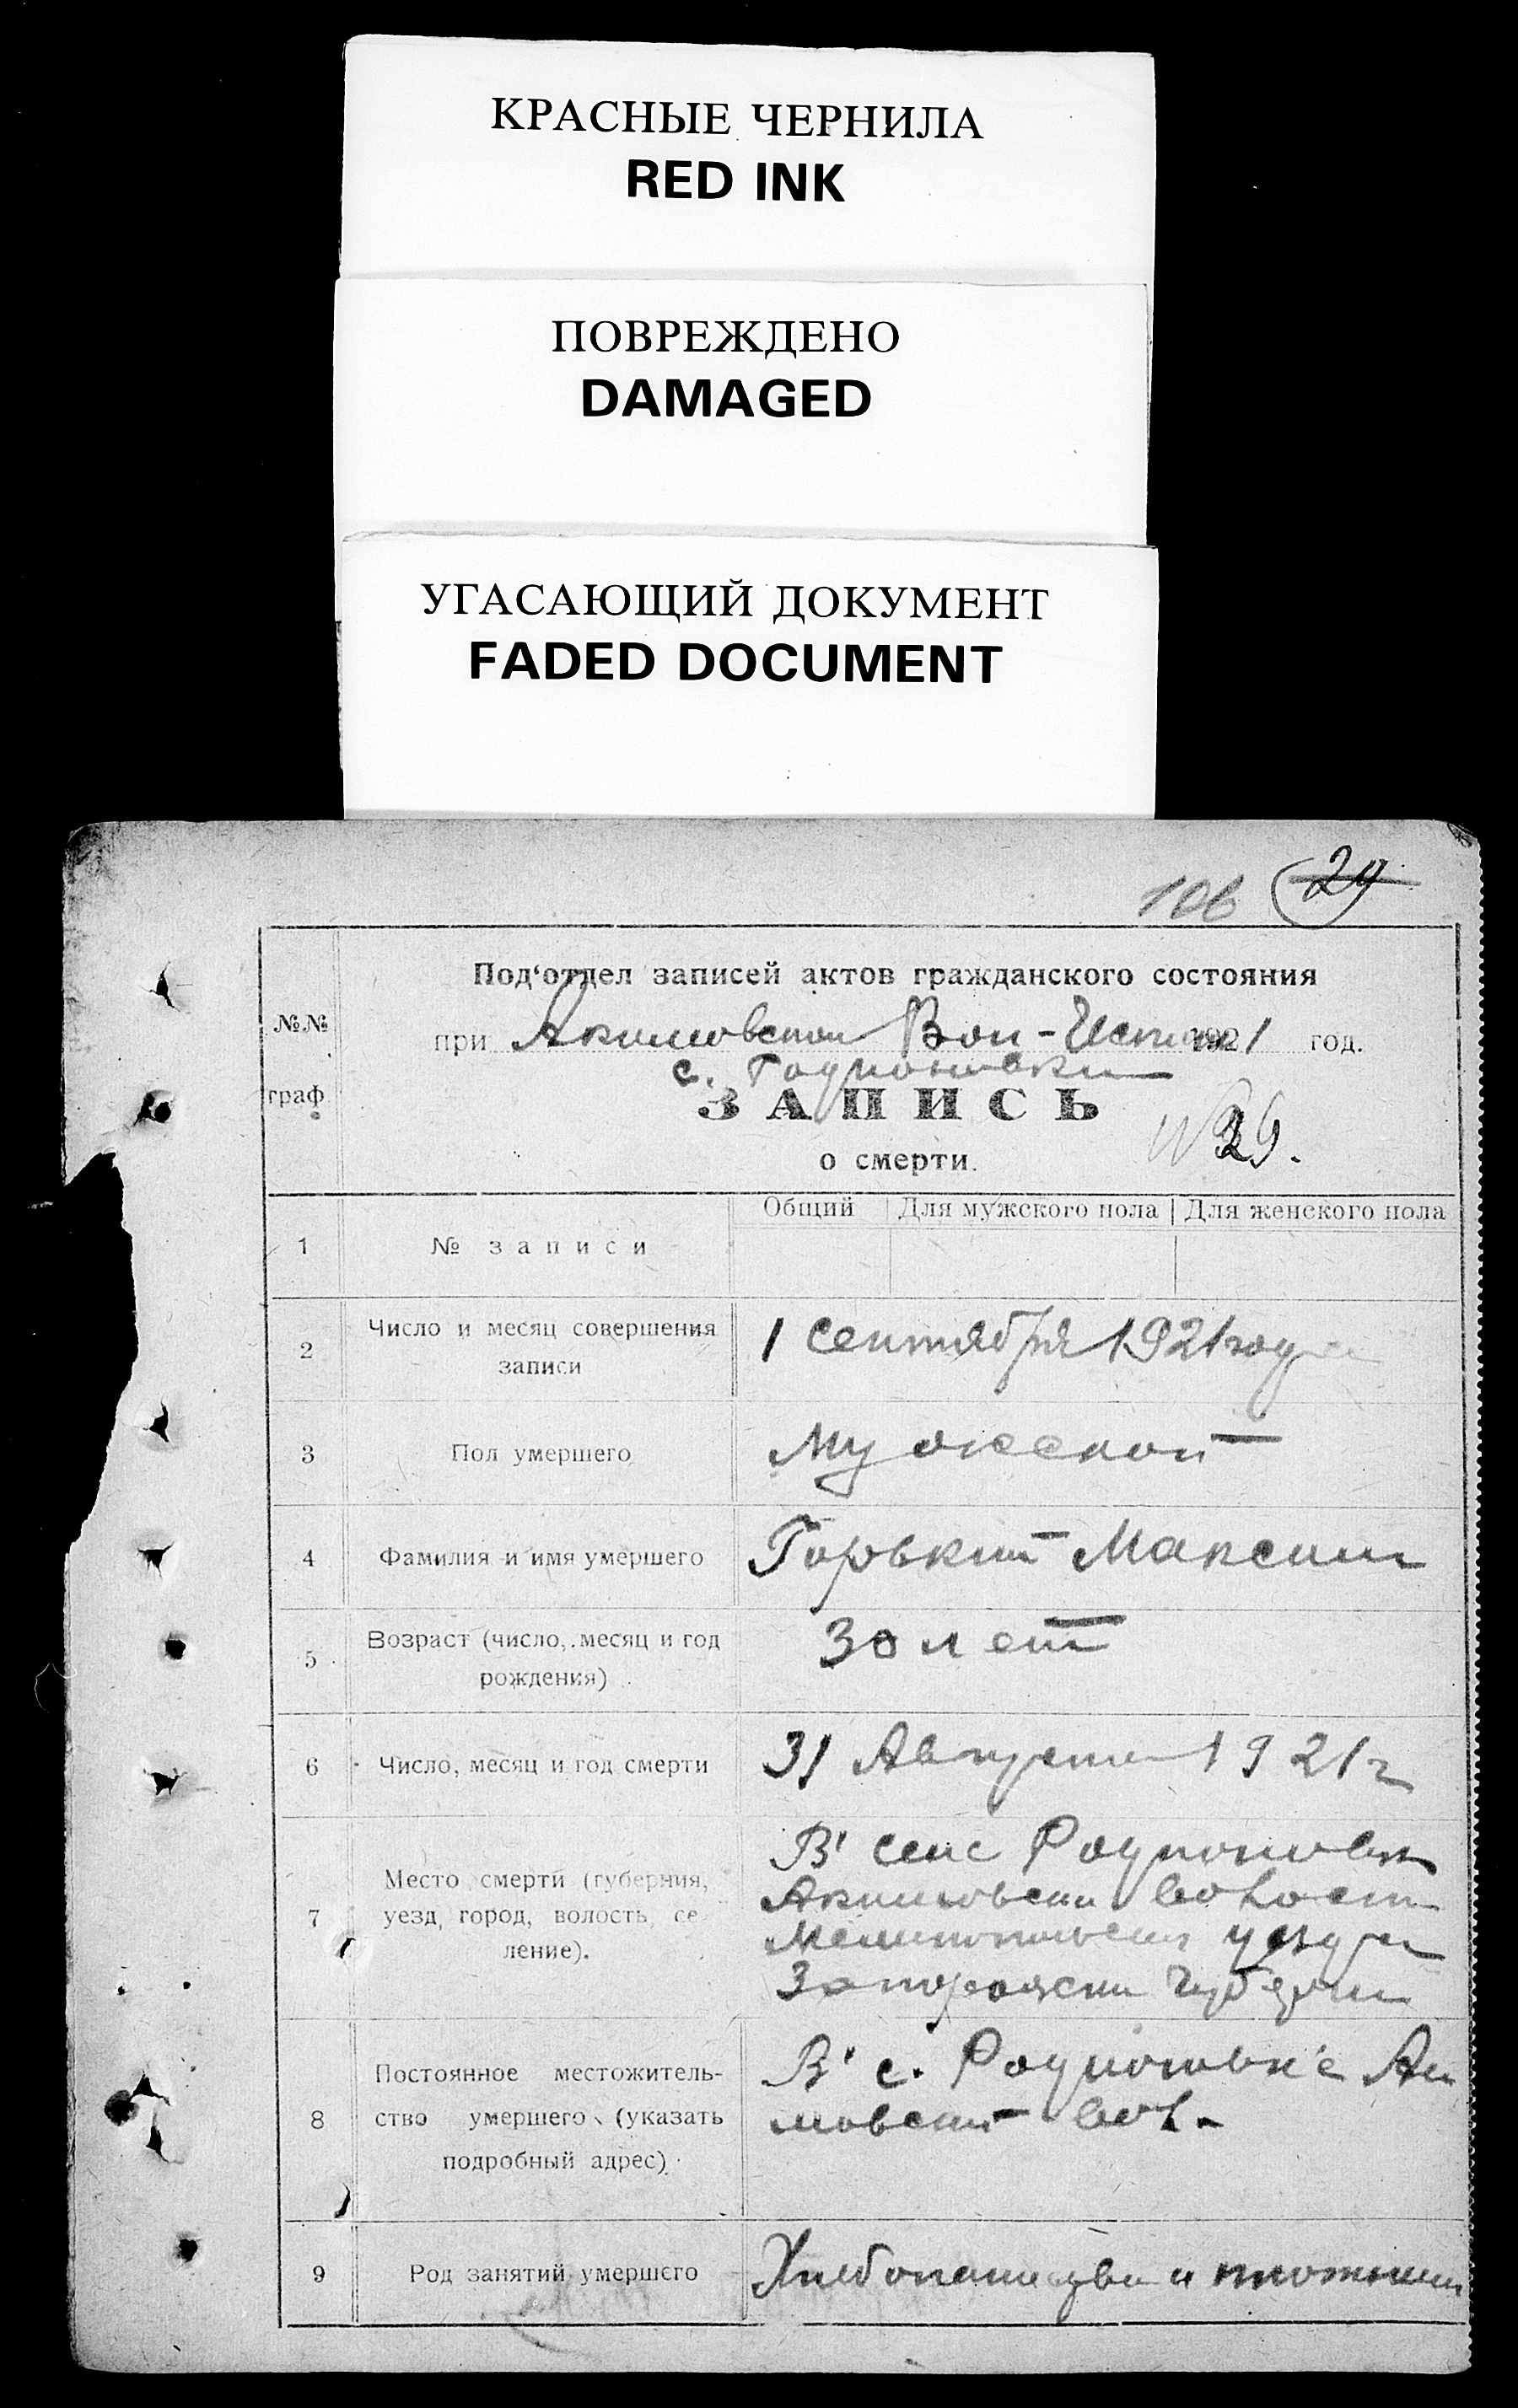 КРАСНЫЕ ЧЕРНИЛА
RED INK
ПОВРЕЖДЕНО
DAMAGED
УГАСАЮЩИЙ ДОКУМЕНТ
FADED DOCUMENT
106 29
Под‘отдел записей актов гражданского состояния
№№
при Акимовском Вол-Испол 1921 год.
с. Родионовки
граф
ЗАПИСЬ
№ 29.
о смерти.
Общий Для мужского пола Для женского пола
1 № записи
2 Число и месяц совершения
записи
1 Сентября 1921 года
3 Пол умершего
Мужской
4 Фамилия и имя умершего
Горький Максим
5 Возраст (число, месяц и год
рождения)
30 лет
6 Число, месяц и год смерти
31 Августа 1921 г
7 Место смерти (губерния,
уезд, город, волость, се-
ление).
В' селе Родионовки
Акимовской волост
Мелитопольского уезда
Запорожской Губернии
8 Постоянное местожитель-
ство умершего (указать
подробный адрес)
В' с. Родионовке Аки
мовской вол.
9 Род занятий умершего
Хлебопашество и